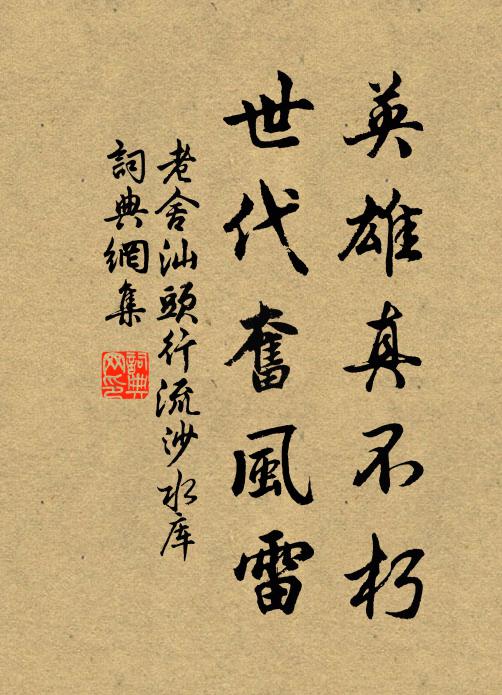 英雄真不朽
世代奮風雷
老舍汕頭行流沙水库
詞典網集
詞典网印